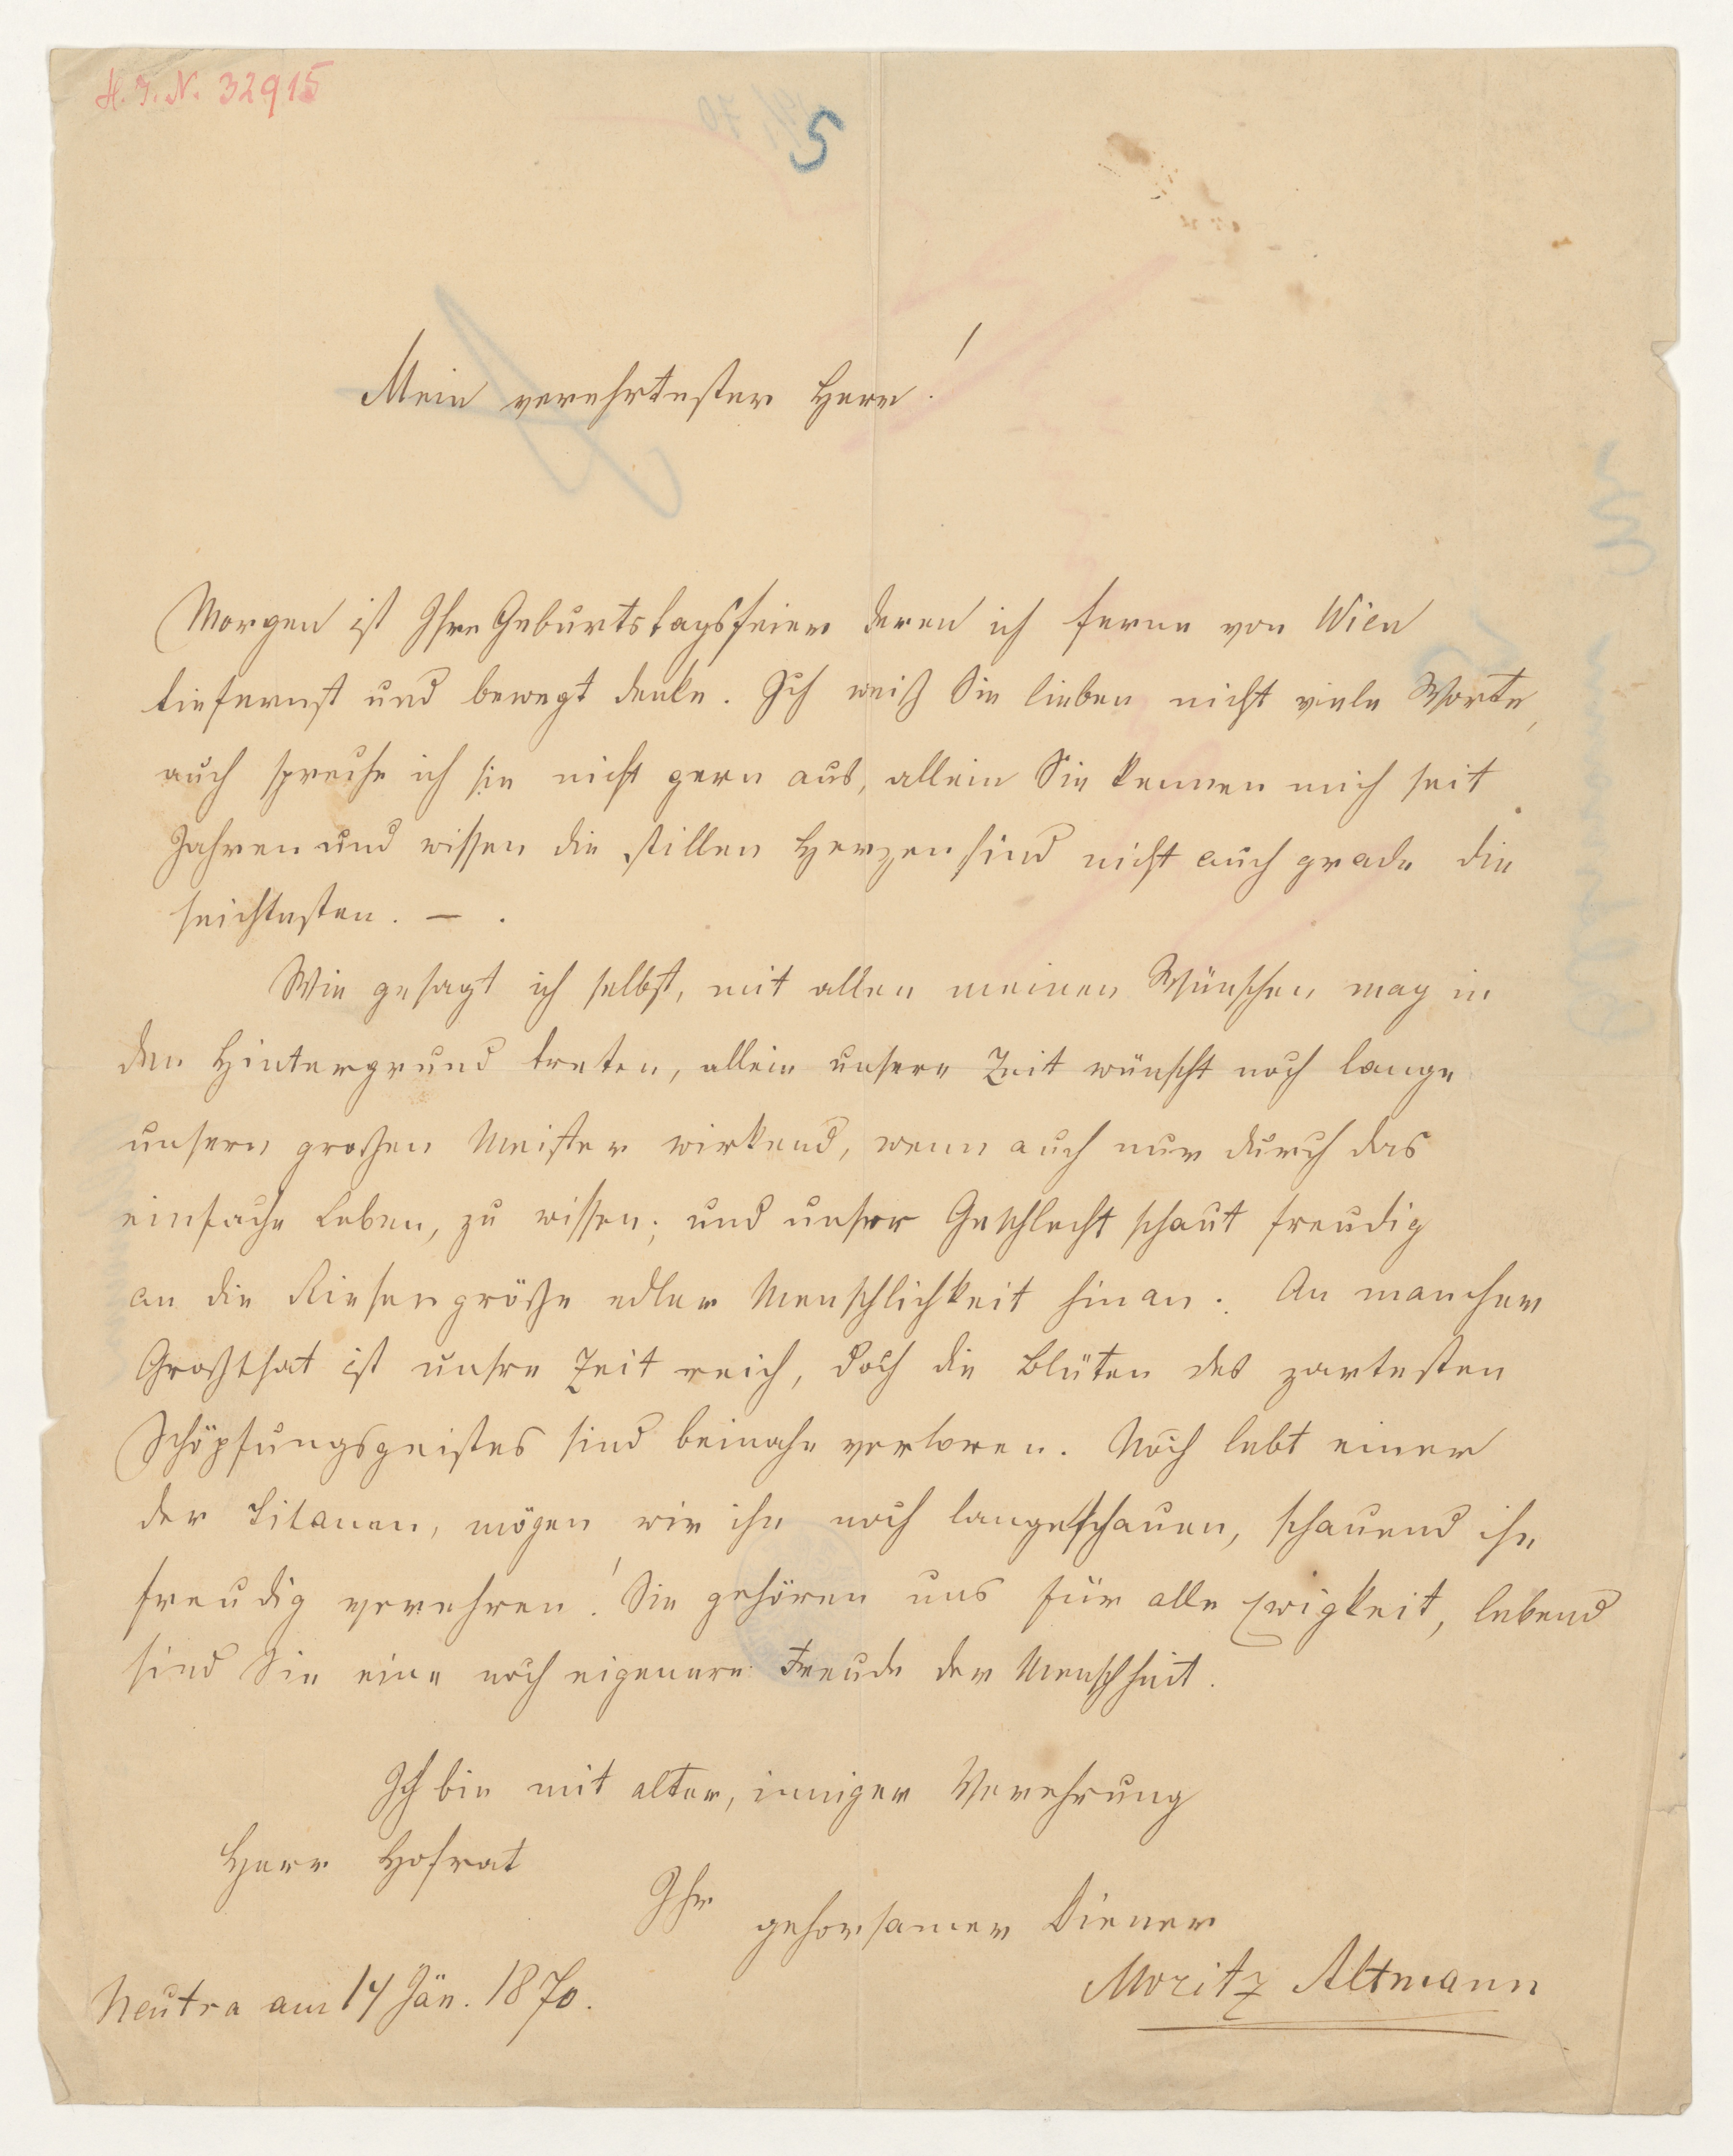 H. I. N. 32915
5
Mein verehrtester Herr!
Morgen ist Ihre Geburtstagsfeier deren ich ferne von Wien
tiefernst und bewegt denke. Ich weiß Sie lieben nicht viele Worte,
auch spreche ich sie nicht gern aus, allein Sie kennen mich seit
Jahren und wissen die stillen Herzen sind nicht auch grade die
seichtesten. – .
Wie gesagt ich selbst, mit allen meinen Wünschen mag in
den Hintergrund treten, allein unsere Zeit wünscht noch lange
unsern großen Meister wirkend, wenn auch nur durch das
einfache Leben, zu wissen; und unser Geschlecht schaut freudig
an die Riesengröße edler Menschlichkeit hinan. An mancher
Großthat ist unsre Zeit reich, doch die Blüten des zartesten
Schöpfungsgeistes sind beinahe verloren. Noch lebt einer
der Titanen, mögen wir ihn noch lange schauen, schauend ihn
freudig verehren! Sie gehören uns für alle Ewigkeit, lebend
sind Sie eine noch eigenere Freude der Menschheit.
Ich bin mit alter, inniger Verehrung
Herr Hofrat
Ihr gehorsamer Diener
Moritz Altmann
Neutra am 14 Jän. 1870.